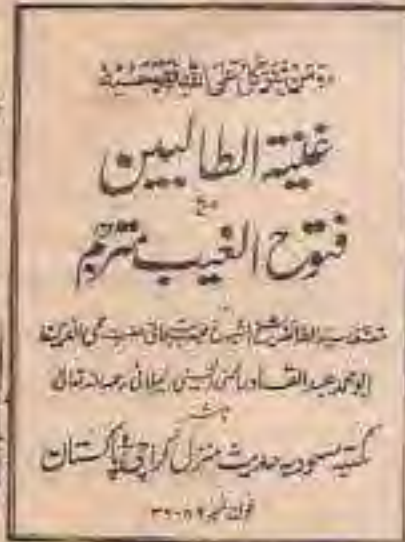 ومن يتوكل على الله فهو حسبه
غنیۃ الطالبین
مع
فتوح الغیب مترجم
شیخ الشیوخ محبوب سبحانی حضرت محی الدین
ابو محمد عبدالقادر الحسنی الحسینی جیلانی رحمہ اللہ تعالیٰ
ناشر
مکتبہ سعودیہ حدیث منزل کراچی پاکستان
فون نمبر ۳۶۰۸۹